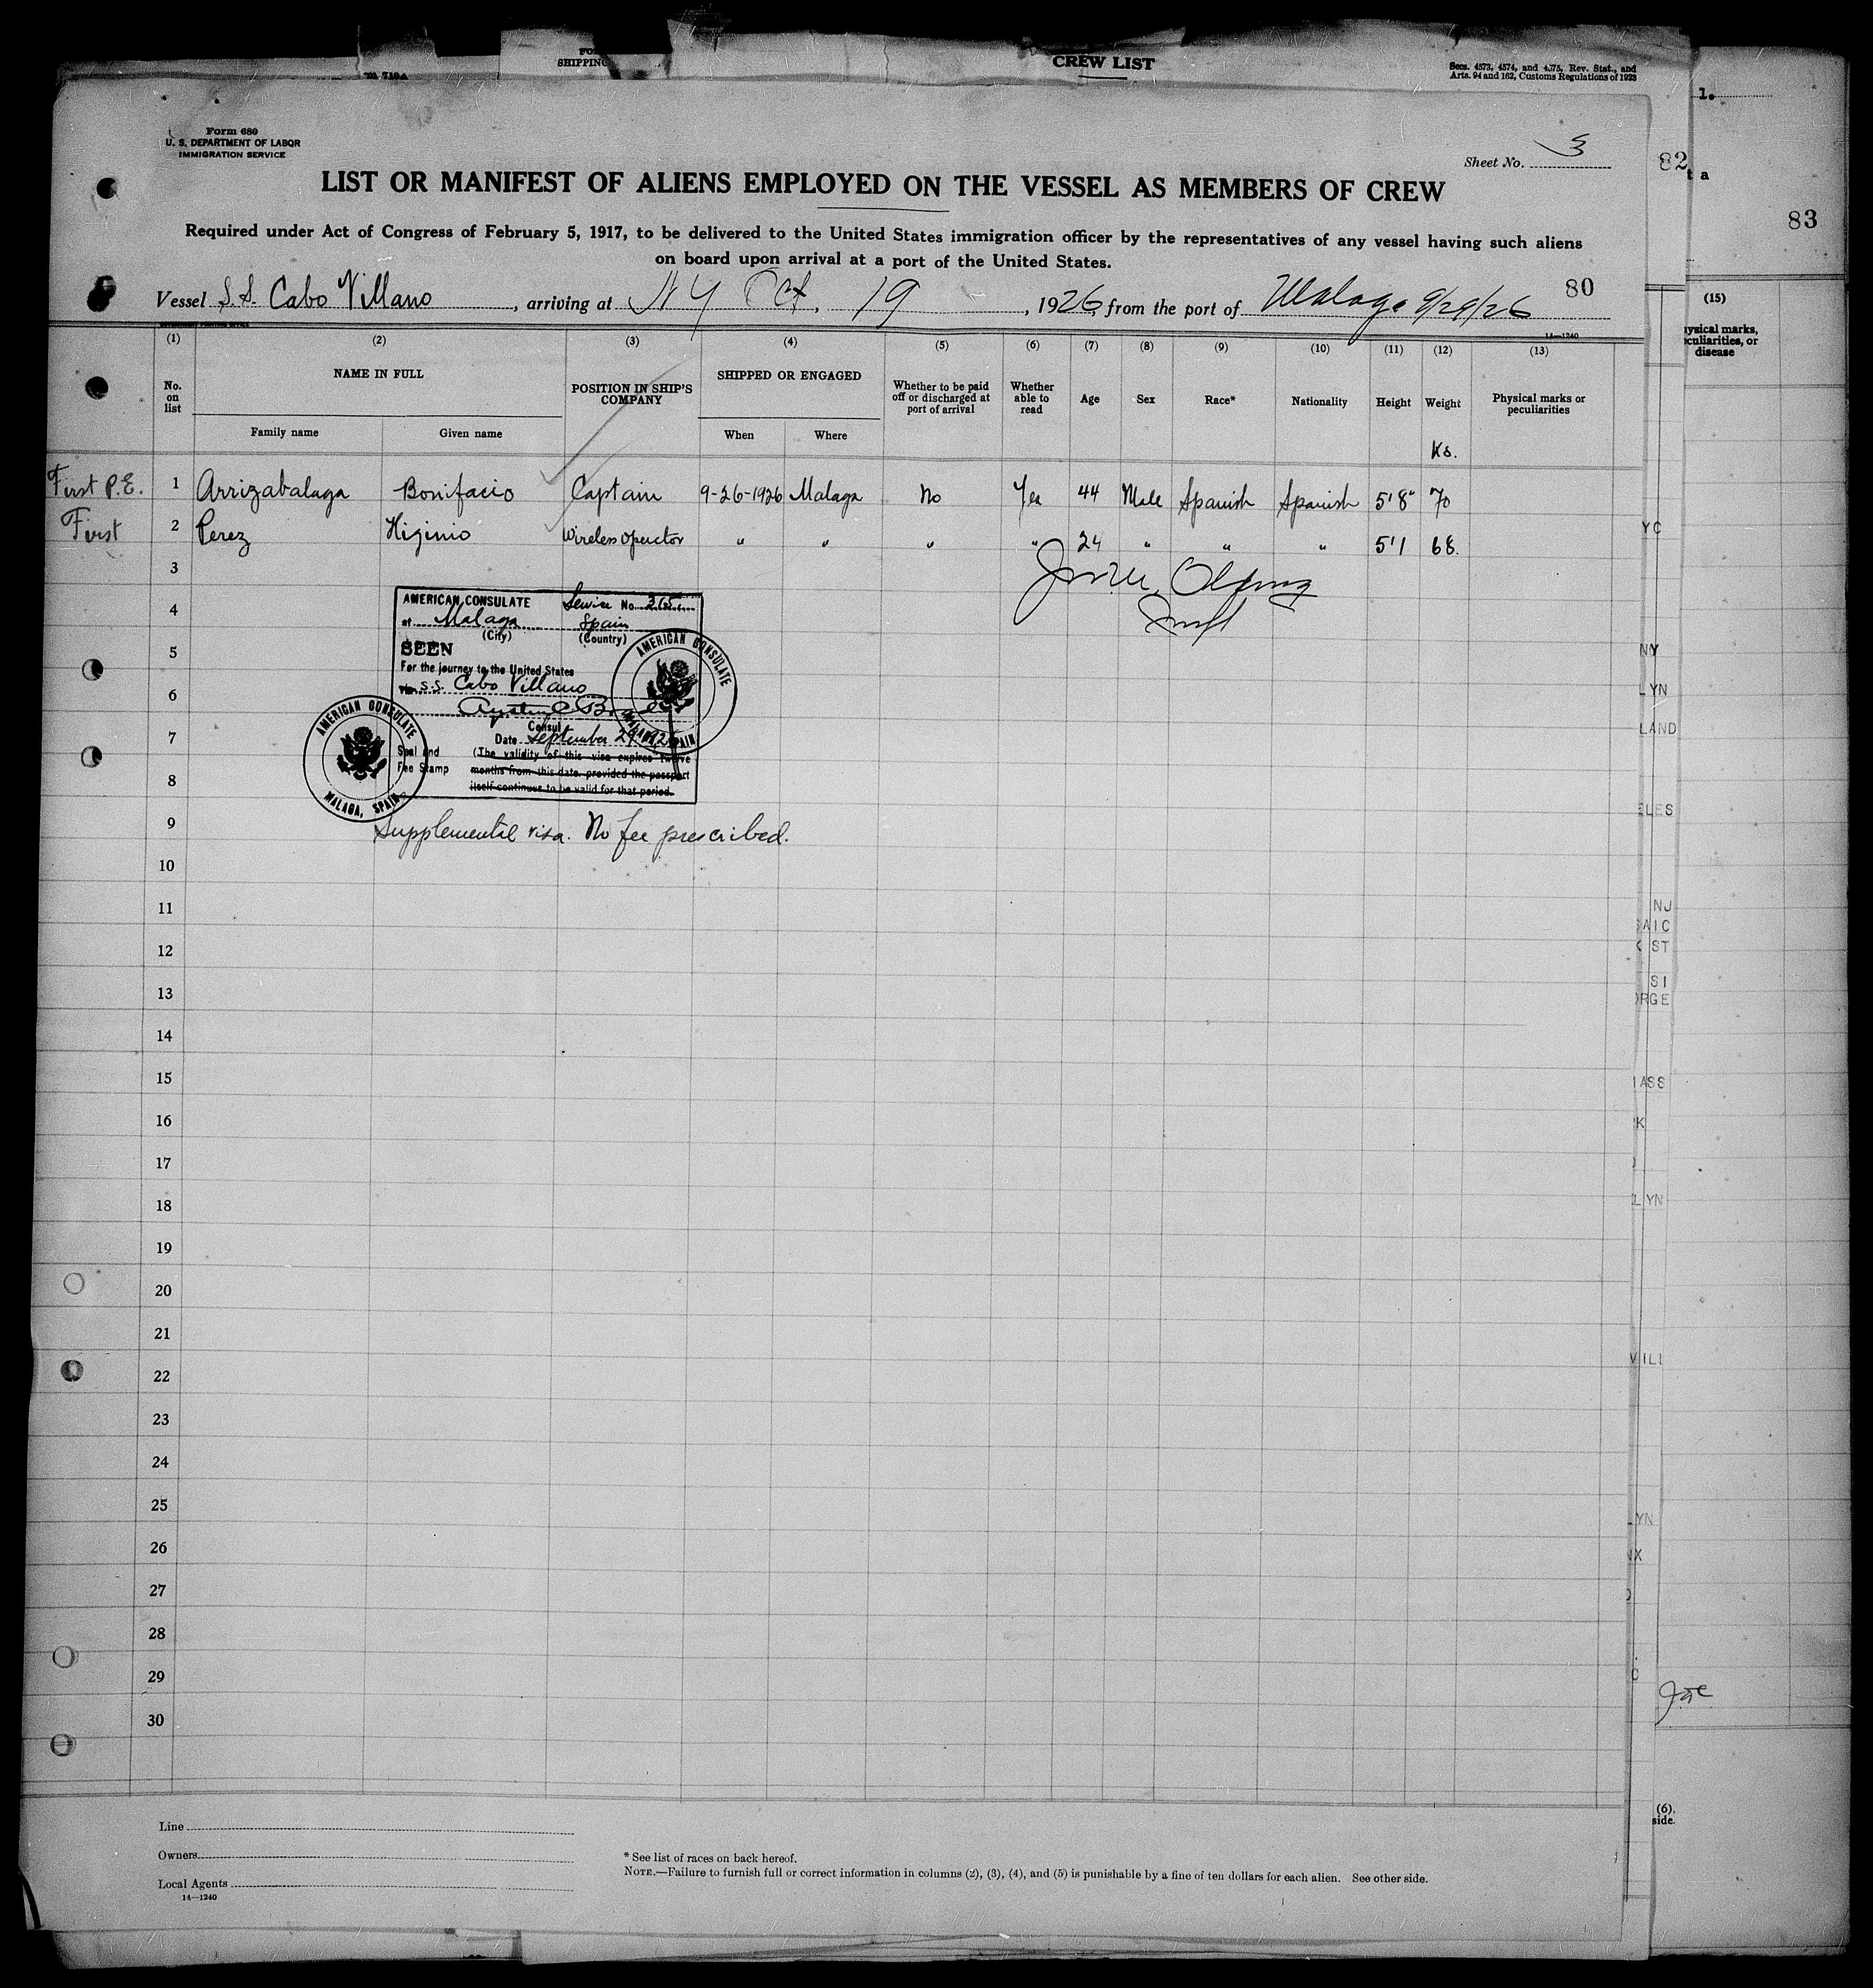 CREW LIST
Secs. 4573, 4574, and 4575, Rev. Stat., and
Arts. 94 and 162, Customs Regulations of 1923
SHIPPING
1.
82
t a
83
Form 680
U. S. DEPARTMENT OF LABOR
IMMIGRATION SERVICE
Sheet No. 3
LIST OR MANIFEST OF ALIENS EMPLOYED ON THE VESSEL AS MEMBERS OF CREW
Required under Act of Congress of February 5, 1917, to be delivered to the United States immigration officer by the representatives of any vessel having such aliens
on board upon arrival at a port of the United States.
80
Vessel S.S. Cabo Villano, arriving at N Y Oct, 19, 1926, from the port of Malaga 9/29/26
14—1240
(1) (2) (3) (4) (5) (6) (7) (8) (9) (10) (11) (12) (13)
No. on list
NAME IN FULL
Family name Given name
POSITION IN SHIP'S COMPANY
SHIPPED OR ENGAGED
When Where
Whether to be paid off or discharged at port of arrival
Whether able to read
Age Sex Race* Nationality Height Weight
Physical marks or peculiarities
Ks.
First P.E. 1 Arrizabalaga Bonifacio Captain 9-26-1926 Malaga No Yes 44 Male Spanish Spanish 5'8" 70
First 2 Perez Higinio Wireless operator " " " " 24 " " " 5'1 68.
3
4
5
6
7
8
9
10
11
12
13
14
15
16
17
18
19
20
21
22
23
24
25
26
27
28
29
30
AMERICAN CONSULATE Service No. 365
at Malaga Spain
(City) (Country)
SEEN
For the journey to the United States
via S.S. Cabo Villano
Consul
Date September 29
Seal and
Fee Stamp
(The validity of this visa expires twelve
months from this date, provided the passport
itself continues to be valid for that period.
AMERICAN CONSULATE
MALAGA, SPAIN
AMERICAN CONSULATE
MALAGA, SPAIN
Supplemental visa. No fee prescribed.
Line
Owners
Local Agents
14—1240
* See list of races on back hereof.
NOTE.—Failure to furnish full or correct information in columns (2), (3), (4), and (5) is punishable by a fine of ten dollars for each alien. See other side.
(15)
ysical marks,
culiarities, or
disease
YC
NY
LYN
LAND
ELES
NJ
SAIC
ST
SI
ORGE
ASS
K
LYN
VILL
LYN
NX
(6),
side.